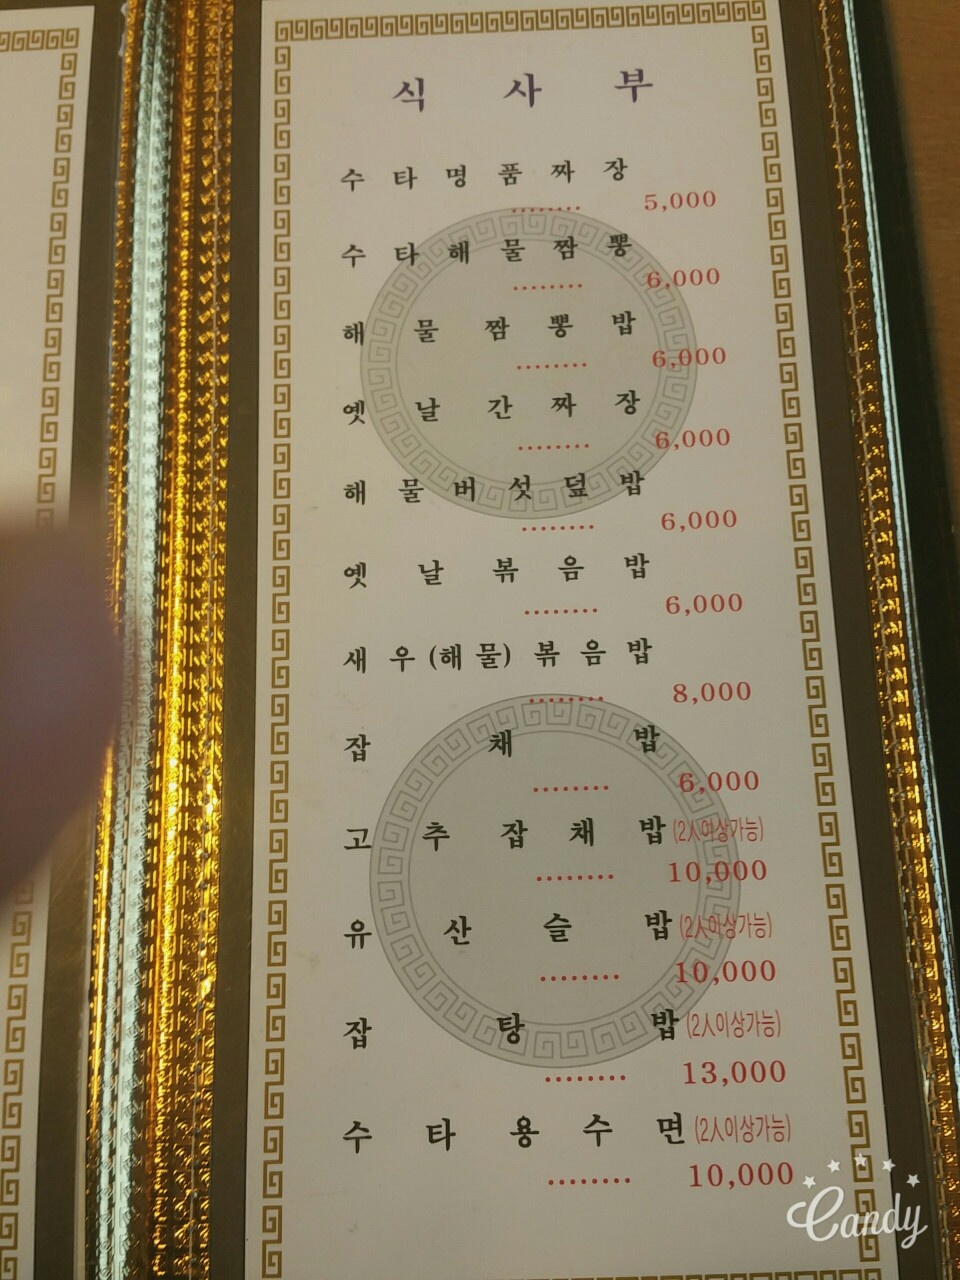 식 사 부
수 타 명 품 짜 장
........ 5,000
수 타 해 물 짬 뽕
........ 6,000
해 물 짬 뽕 밥
........ 6,000
옛 날 간 짜 장
........ 6,000
해 물 버 섯 덮 밥
........ 6,000
옛 날 볶 음 밥
........ 6,000
새 우 (해 물) 볶 음 밥
........ 8,000
잡 채 밥
........ 6,000
고 추 잡 채 밥 (2人이상가능)
........ 10,000
유 산 슬 밥 (2人이상가능)
........ 10,000
잡 탕 밥 (2人이상가능)
........ 13,000
수 타 용 수 면 (2人이상가능)
........ 10,000
Candy